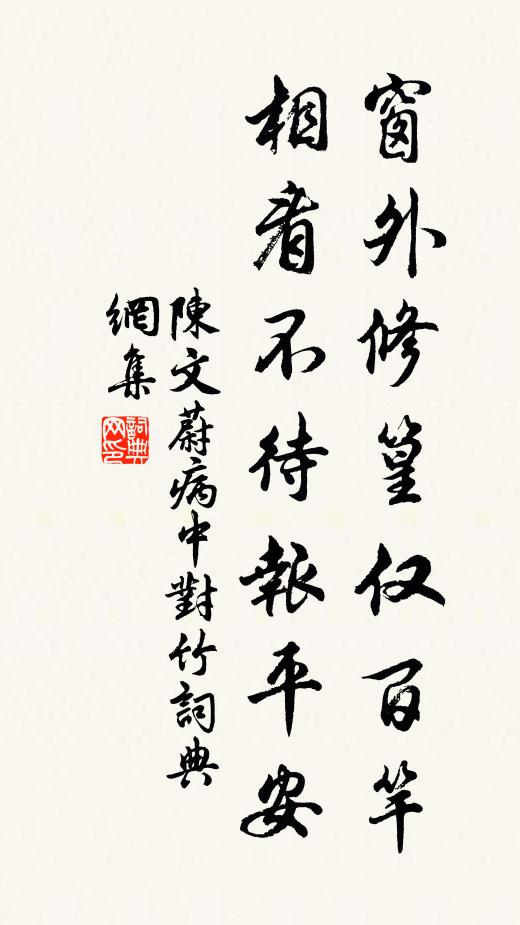 窗外修篁仅百竿
相看不待報平安
陳文蔚病中對竹詞典
網集
詞典
网印